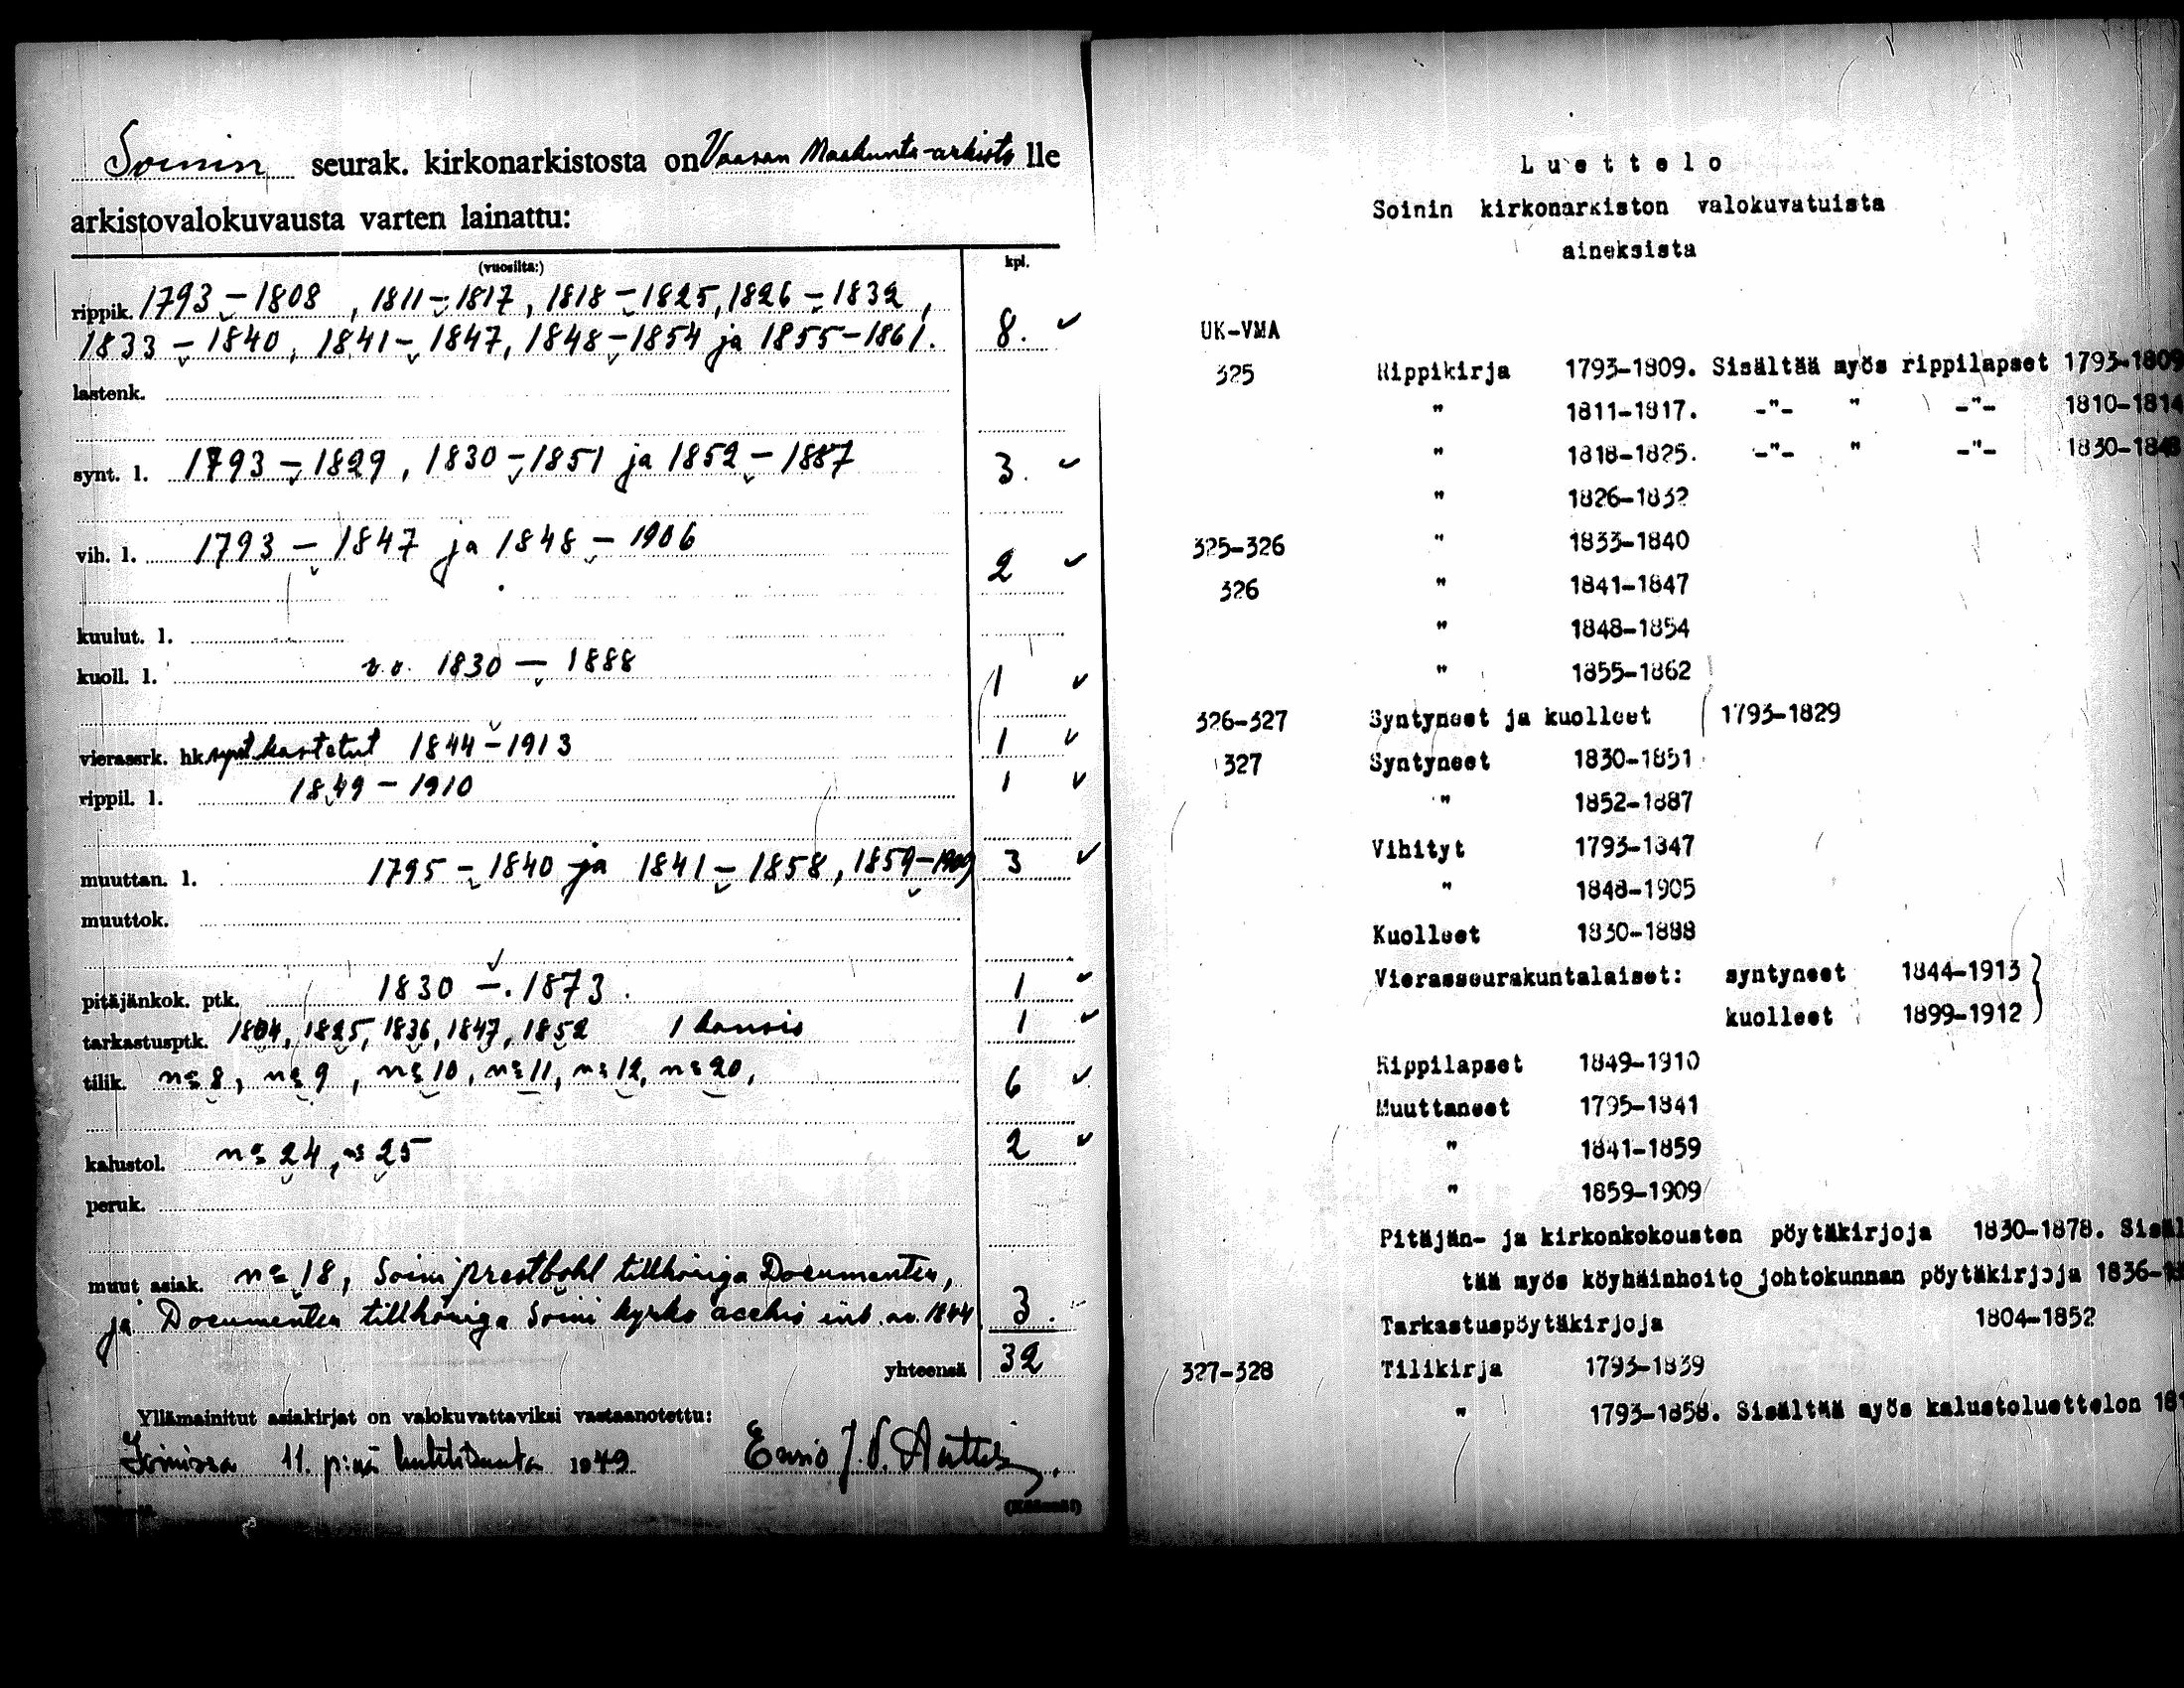 Soinin seurak. kirkonarkistosta on Vaasan Maakunta-arkisto lle
arkistovalokuvausta varten lainattu:
(vuosilta:) kpl.
rippik. 1793 – 1808 , 1811 – 1817 , 1818 – 1825, 1826 – 1832 ,
1833 – 1840 , 1841 – 1847, 1848 – 1854 ja 1855 – 1861. 8. ✓
lastenk.
synt. l. 1793 – 1829 , 1830 – 1851 ja 1852 – 1887 3. ✓
vih. l. 1793 – 1847 ja 1848 – 1906 2 ✓
kuulut. l.
kuoll. l. v.v. 1830 – 1888 1 ✓
vierassrk. hk. synt. kastetut 1844 – 1913 1 ✓
rippil. l. 1849 – 1910 1 ✓
muuttan. l. 1795 – 1840 ja 1841 – 1858, 1859 – 1909 3 ✓
muuttok.
pitäjänkok. ptk. 1830 – 1873. 1 ✓
tarkastusptk. 1804, 1825, 1836, 1847, 1852 1 kansio 1 ✓
tilik. no 8, no 9 , no 10, no 11, no 12, no 20, 6 ✓
kalustol. no 24, no 25 2 ✓
peruk.
muut asiak. no 18, Soini prestbohl tillhöriga Documenten,
ja Documenten tillhöriga Soini kyrko 1844 3.
yhteensä 32
Yllämainitut asiakirjat on valokuvattaviksi vastaanotettu:
Soinissa 11. p:nä huhtikuuta 1949 Ensio J. V.
(Käännä!)
Luettelo
Soinin kirkonarkiston valokuvatuista
aineksista
UK-VMA
325 Rippikirja 1793-1809. Sisältää myös rippilapset 1793-1809
" 1811-1817. -"- " -"- 1810-1814
" 1818-1825. -"- " -"- 1830-1848
" 1826-1832
325-326 " 1833-1840
326 " 1841-1847
" 1848-1854
" 1855-1862
326-327 Syntyneet ja kuolleet 1793-1829
327 Syntyneet 1830-1851
" 1852-1887
Vihityt 1793-1847
" 1848-1905
Kuolleet 1830-1888
Vierasseurakuntalaiset: syntyneet 1844-1913
kuolleet 1899-1912
Rippilapset 1849-1910
Muuttaneet 1795-1841
" 1841-1859
" 1859-1909
Pitäjän- ja kirkonkokousten pöytäkirjoja 1830-1878. Sisäl
tää myös köyhäinhoito johtokunnan pöytäkirjoja 1836-
Tarkastuspöytäkirjoja 1804-1852
327-328 Tilikirja 1793-1839
" 1793-1858. Sisältää myös kalustoluettelon 18